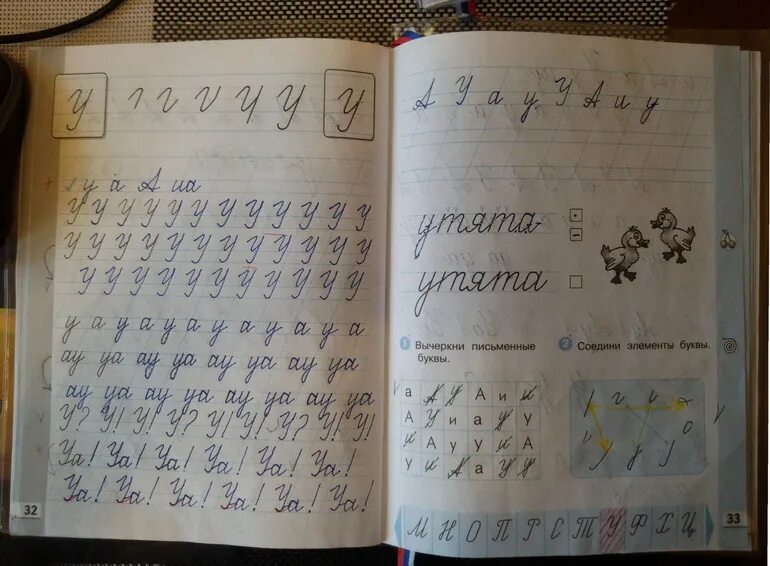 У У У
+ у а А иа
У У У У У У У У У У У У
У У У У У У У У У У У У
У У У У У У У У У У У
у а у а у а у а у а у а
ау уа ау уа ау уа ау уа
ау уа ау уа ау уа ау уа
У? У! У! У? У! У! У? У! У!
Уа! Уа! Уа! Уа! Уа! Уа!
Уа! Уа! Уа! Уа! Уа! Уа!
32
А У а у У А и у
утята
утята
1 Вычеркни письменные буквы.
а А У А и и
А У и а У У
и А у У и А
У и А а У У
2 Соедини элементы буквы.
М Н О П Р С Т У Ф Х Ц
33